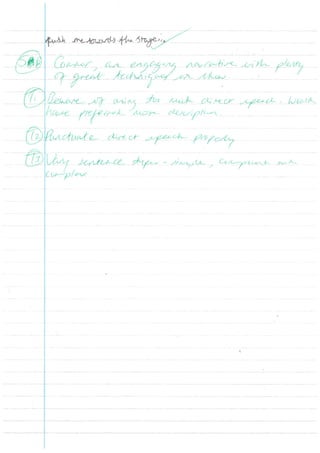 push me towards the stage...
Connor, an engaging narrative with plenty
of great techniques on show
T1 Beware of using too much direct speech. Would
have preferred more description
T2 Punctuate direct speech properly
T3 Vary sentence types - simple, compound and
complex